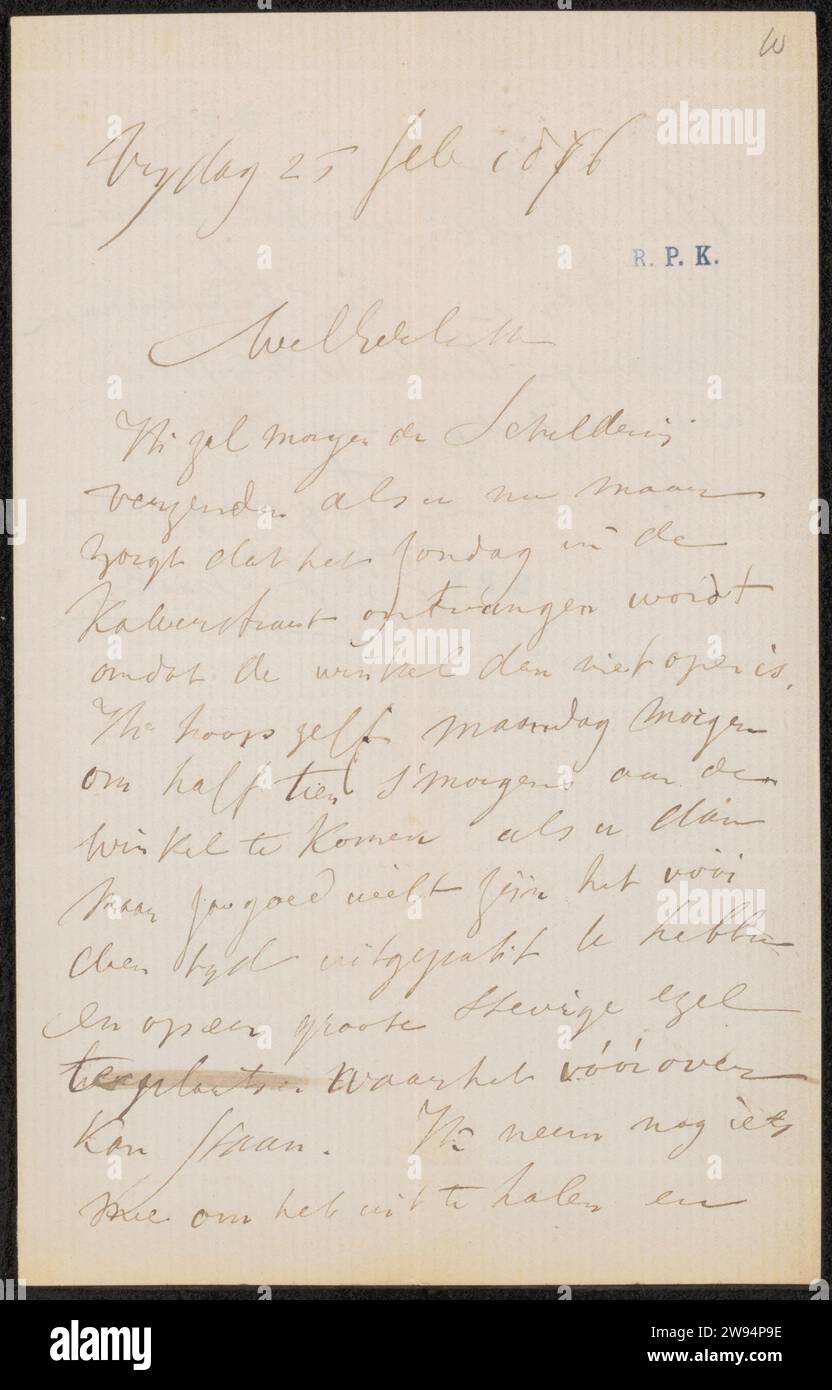 W
Vrydag 25 feb 1876
R. P. K.
WelEdele Heer
Ik zal morgen de Schilderij
verzenden als u nu maar
zorgt dat het Zondag in de
Kalverstraat ontvangen wordt
omdat de winkel dan niet open is.
Ik hoop zelf maandag morgen
om half tien s'morgens aan de
winkel te Komen als u dan
maar zoo goed wilt zijn het vóór
dien tyd uitgepakt te hebben
en op een groote stevige ezel
te plaatsen waar het vóórover
Kan staan. Ik neem nog iets
mee om het uit te halen en
alamy
Image ID: 2W94P9E
www.alamy.com